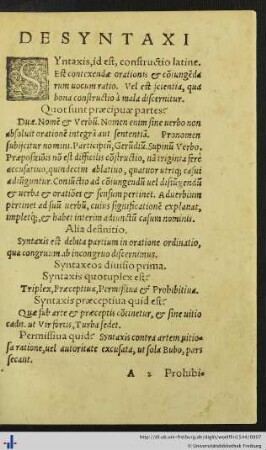 DE SYNTAXI
SYntaxis, id est, constructio latine.
Est contexendæ orationis & cõiungẽdarum
uocum ratio. Vel est scientia, qua
bona constructio à mala discernitur.
Quot sunt præcipuæ partes?
Duæ. Nomẽ & Verbũ. Nomen enim sine verbo non
absoluit orationẽ integrã aut sententiã. Pronomen
subijcitur nomini. Participiũ, Gerũdiũ. Supinũ Verbo.
Præpositiõis nõ est difficilis cõstructio, nã triginta ferè
accusatiuo, quindecim ablatiuo, quatuor utriq; casui
adiũguntur. Coniũctio ad cõiungendũ uel disiũgendũ
& uerba & oratiões & sensum pertinet. Aduerbium
pertinet ad suũ verbũ, cuius significationẽ explanat,
impletq́;, & habet interim adiunctũ casum nominis.
Alia definitio.
Syntaxis est debita partium in oratione ordinatio,
qua congruum ab incongruo discernimus.
Syntaxeos diuisio prima.
Syntaxis quotuplex est?
Triplex, Præceptiua, Permissiua & Prohibitiua.
Syntaxis præceptiua quid est?
Quæ sub arte & præceptis cõtinetur, & sine uitio
cadit. ut Vir fortis, Turba sedet.
Permissiua quid? Syntaxis contra artem uitiosa
ratione, uel autoritate excusata, ut sola Bubo, pars
secant.
A 2 Prohibi-
http://dl.ub.uni-freiburg.de/diglit/
© Universitätsbibliothek Freiburg